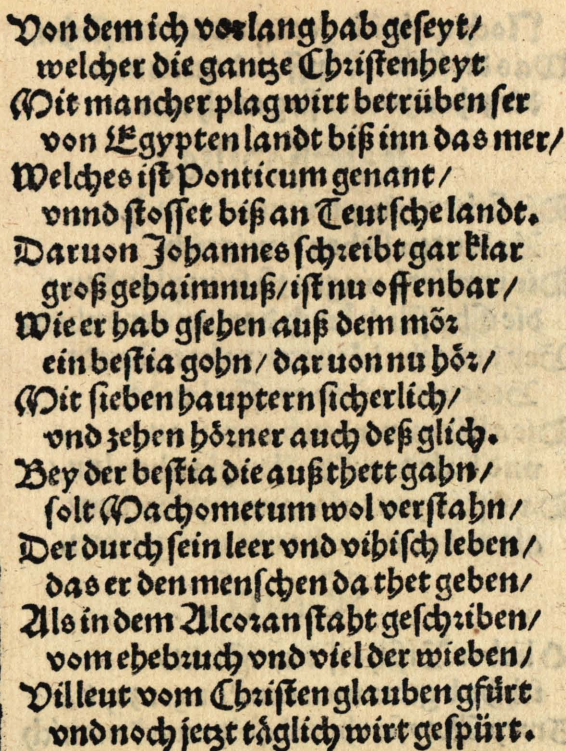 Von dem ich vorlang hab geseyt/
welcher die gantze Christenheyt
Mit mancher plag wirt betrüben ser
von Egypten landt biß inn das mer/
Welches ist Ponticum genant/
vnnd stosset biß an Teutsche landt.
Daruon Johannes schreibt gar klar
groß gehaimnuß/ ist nu offenbar/
Wie er hab gsehen auß dem mör
ein bestia gohn/ daruon nu hör/
Mit sieben hauptern sicherlich/
vnd zehen hörner auch deß glich.
Bey der bestia die auß thett gahn/
solt Machometum wol verstahn/
Der durch sein leer vnd vihisch leben/
das er den menschen da thet geben/
Als in dem Alcoran staht geschriben/
vom ehebruch vnd viel der wieben/
Vil leut vom Christen glauben gfürt
vnd noch jetzt täglich wirt gespürt.